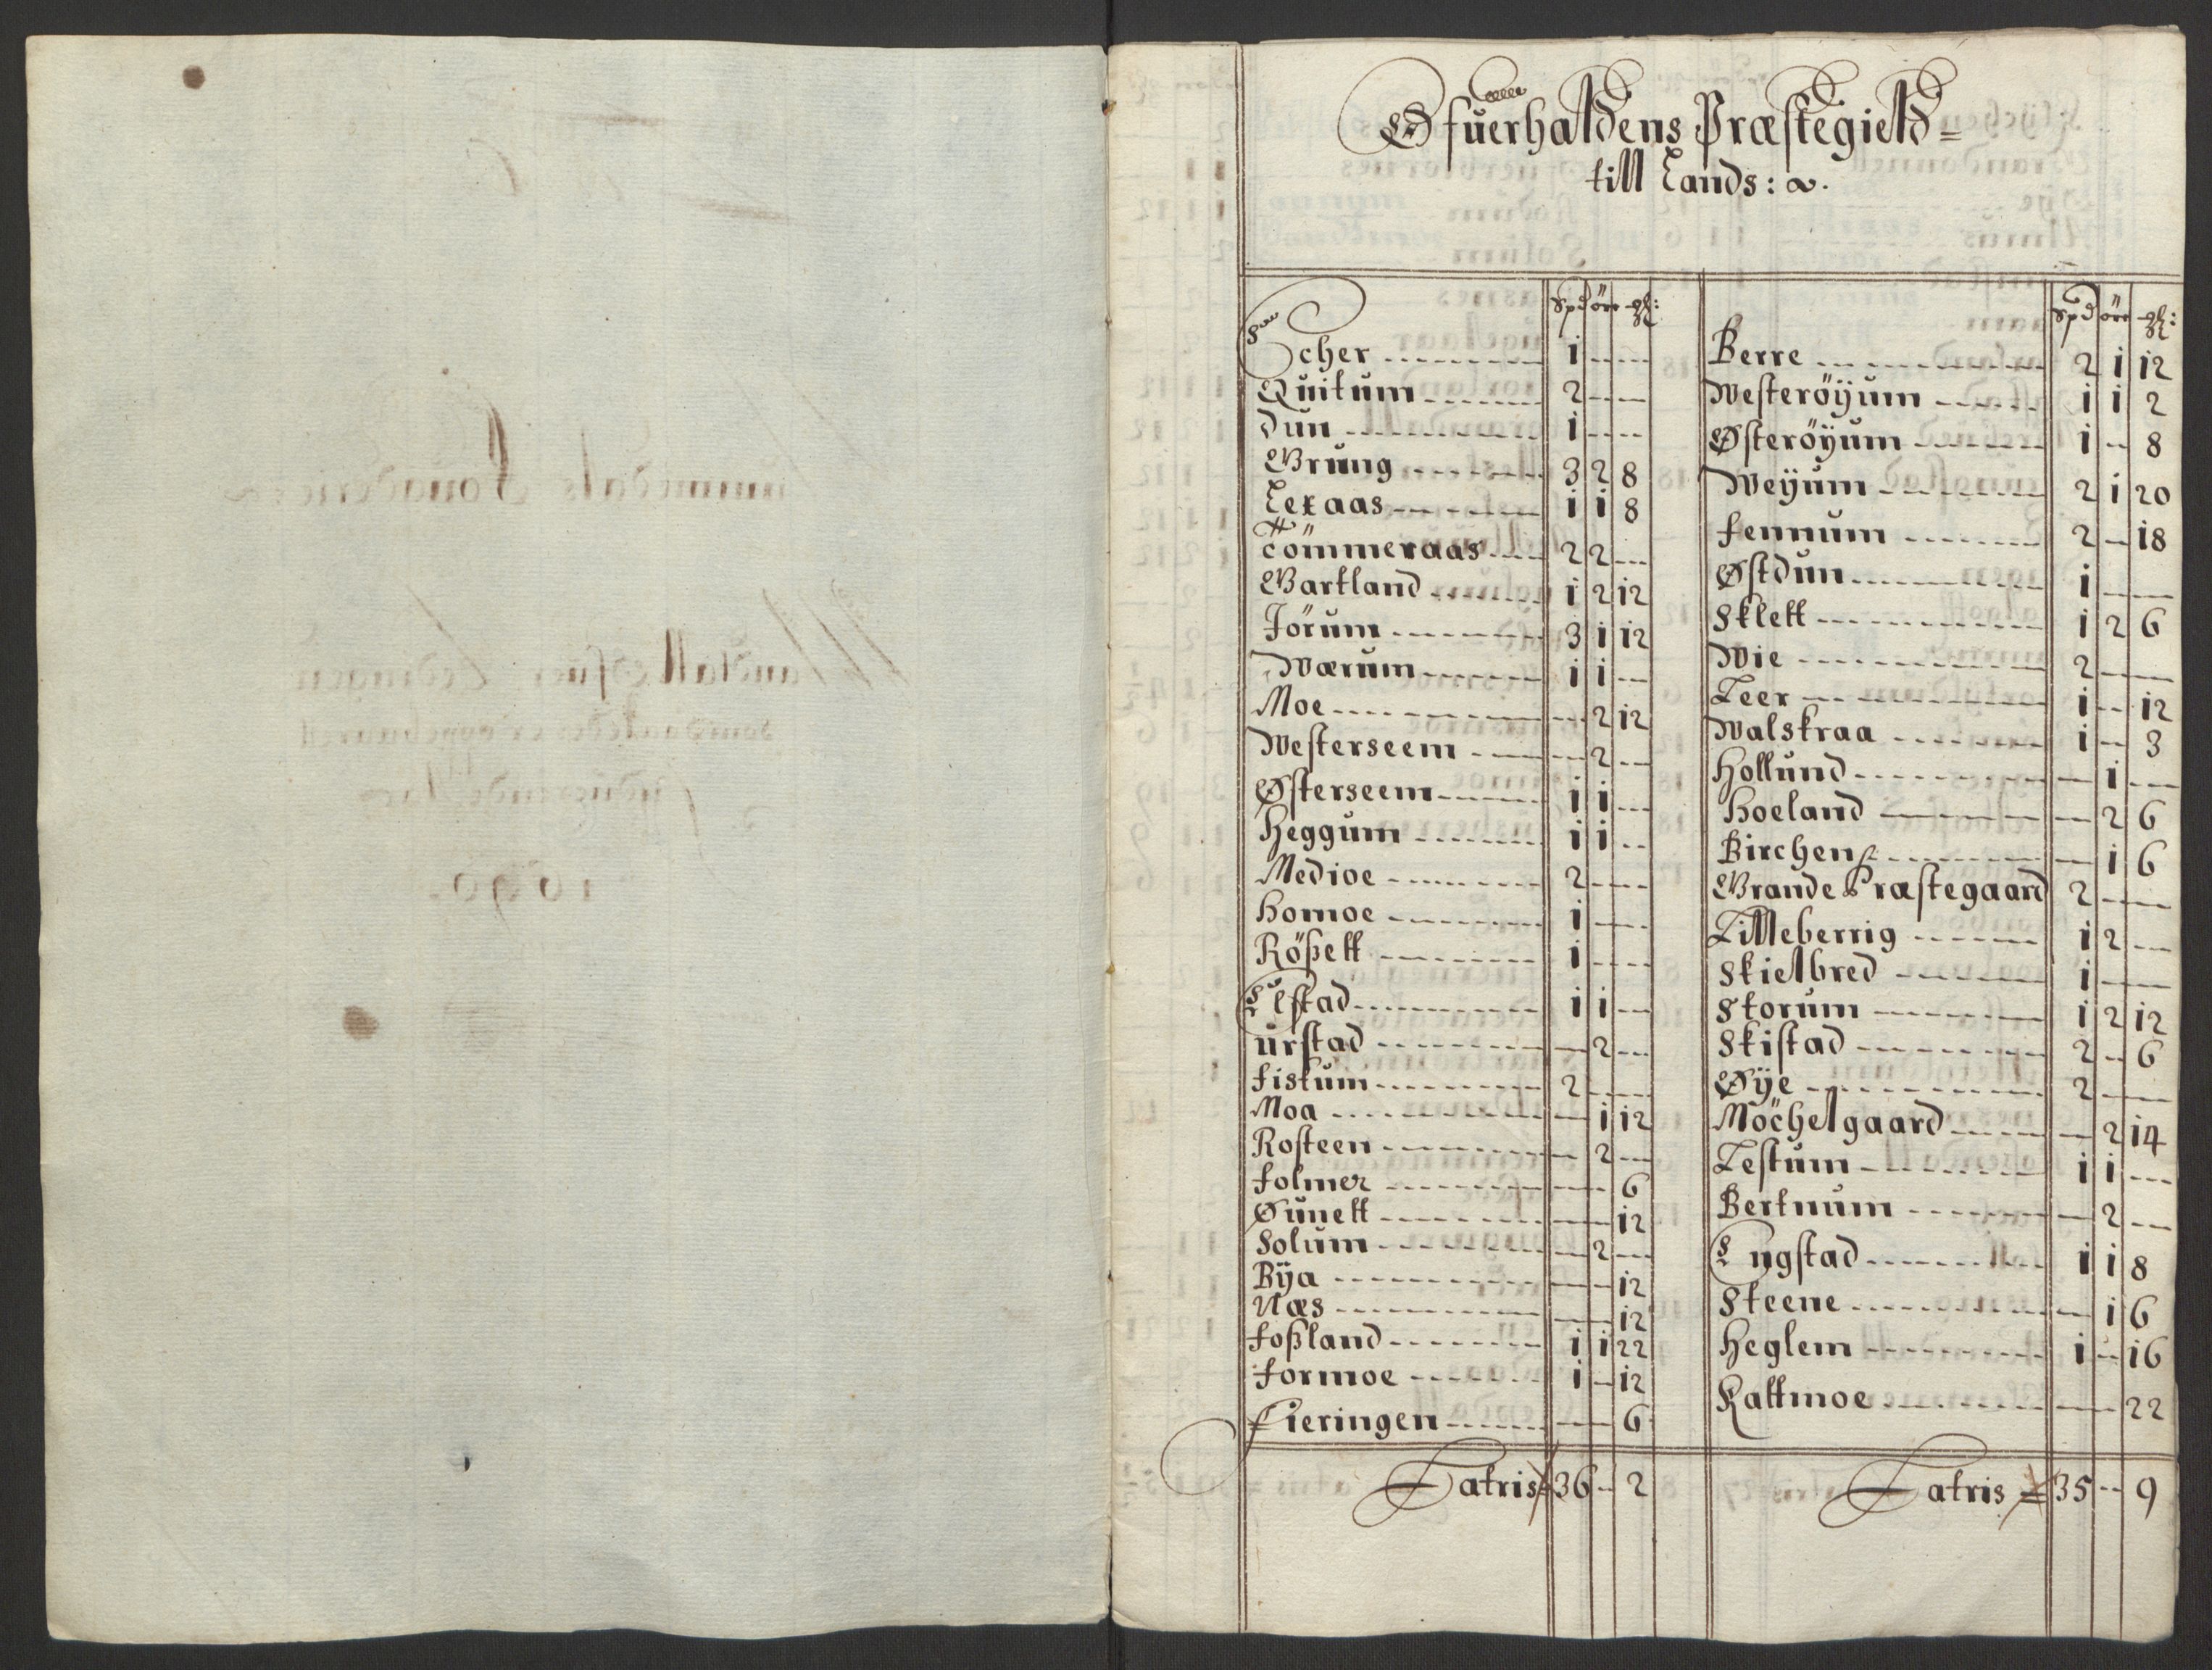 Øfuerhaldens Præstegield=
till Lands:
Spd öre
Echer 1
Quitum 2
dun 1
Grung 3 2 8
Lexaas 1 1 8
Tömmeraas 2 2
Gartland 1 2 12
Jörum 3 1 12
Wærum 1 1
Moe 2 12
Westerseem 2
Østerseem 1 1
Heggum 1 1
Medioe 2
Homoe 1
Rößett 1
Elstad 1 1
urstad 2
fiskum 2
Moa 1 12
Rosteen 2
folmer 6
Øunett 12
Solum 2
Bÿa 12
Næs 12
foßland 1 1 22
formoe 1 12
Fieringen 6
Latris 36 2
Spd öre
Berre 2 1 12
Westeröÿum 1 1 2
Østeröÿum 1 8
Weÿum 2 1 20
fennum 2 18
Østdun 1
Sklett 1 2 6
Wie 2
Leer 1 12
Walskraa 1 3
Hollund 1
Hoeland 2 6
Birchen 1 6
Grande Præstegaard 2
Lilleberrig 1 2
Skielbred 1
Storum 1 2 12
Skistad 2 6
Øÿe 2
Möchelgaard 2 14
Lestum 1 1
Bertnum 2
Engstad 1 1 8
Steene 1 6
Heglem 1 16
Kattmoe 22
Latris = 35 9